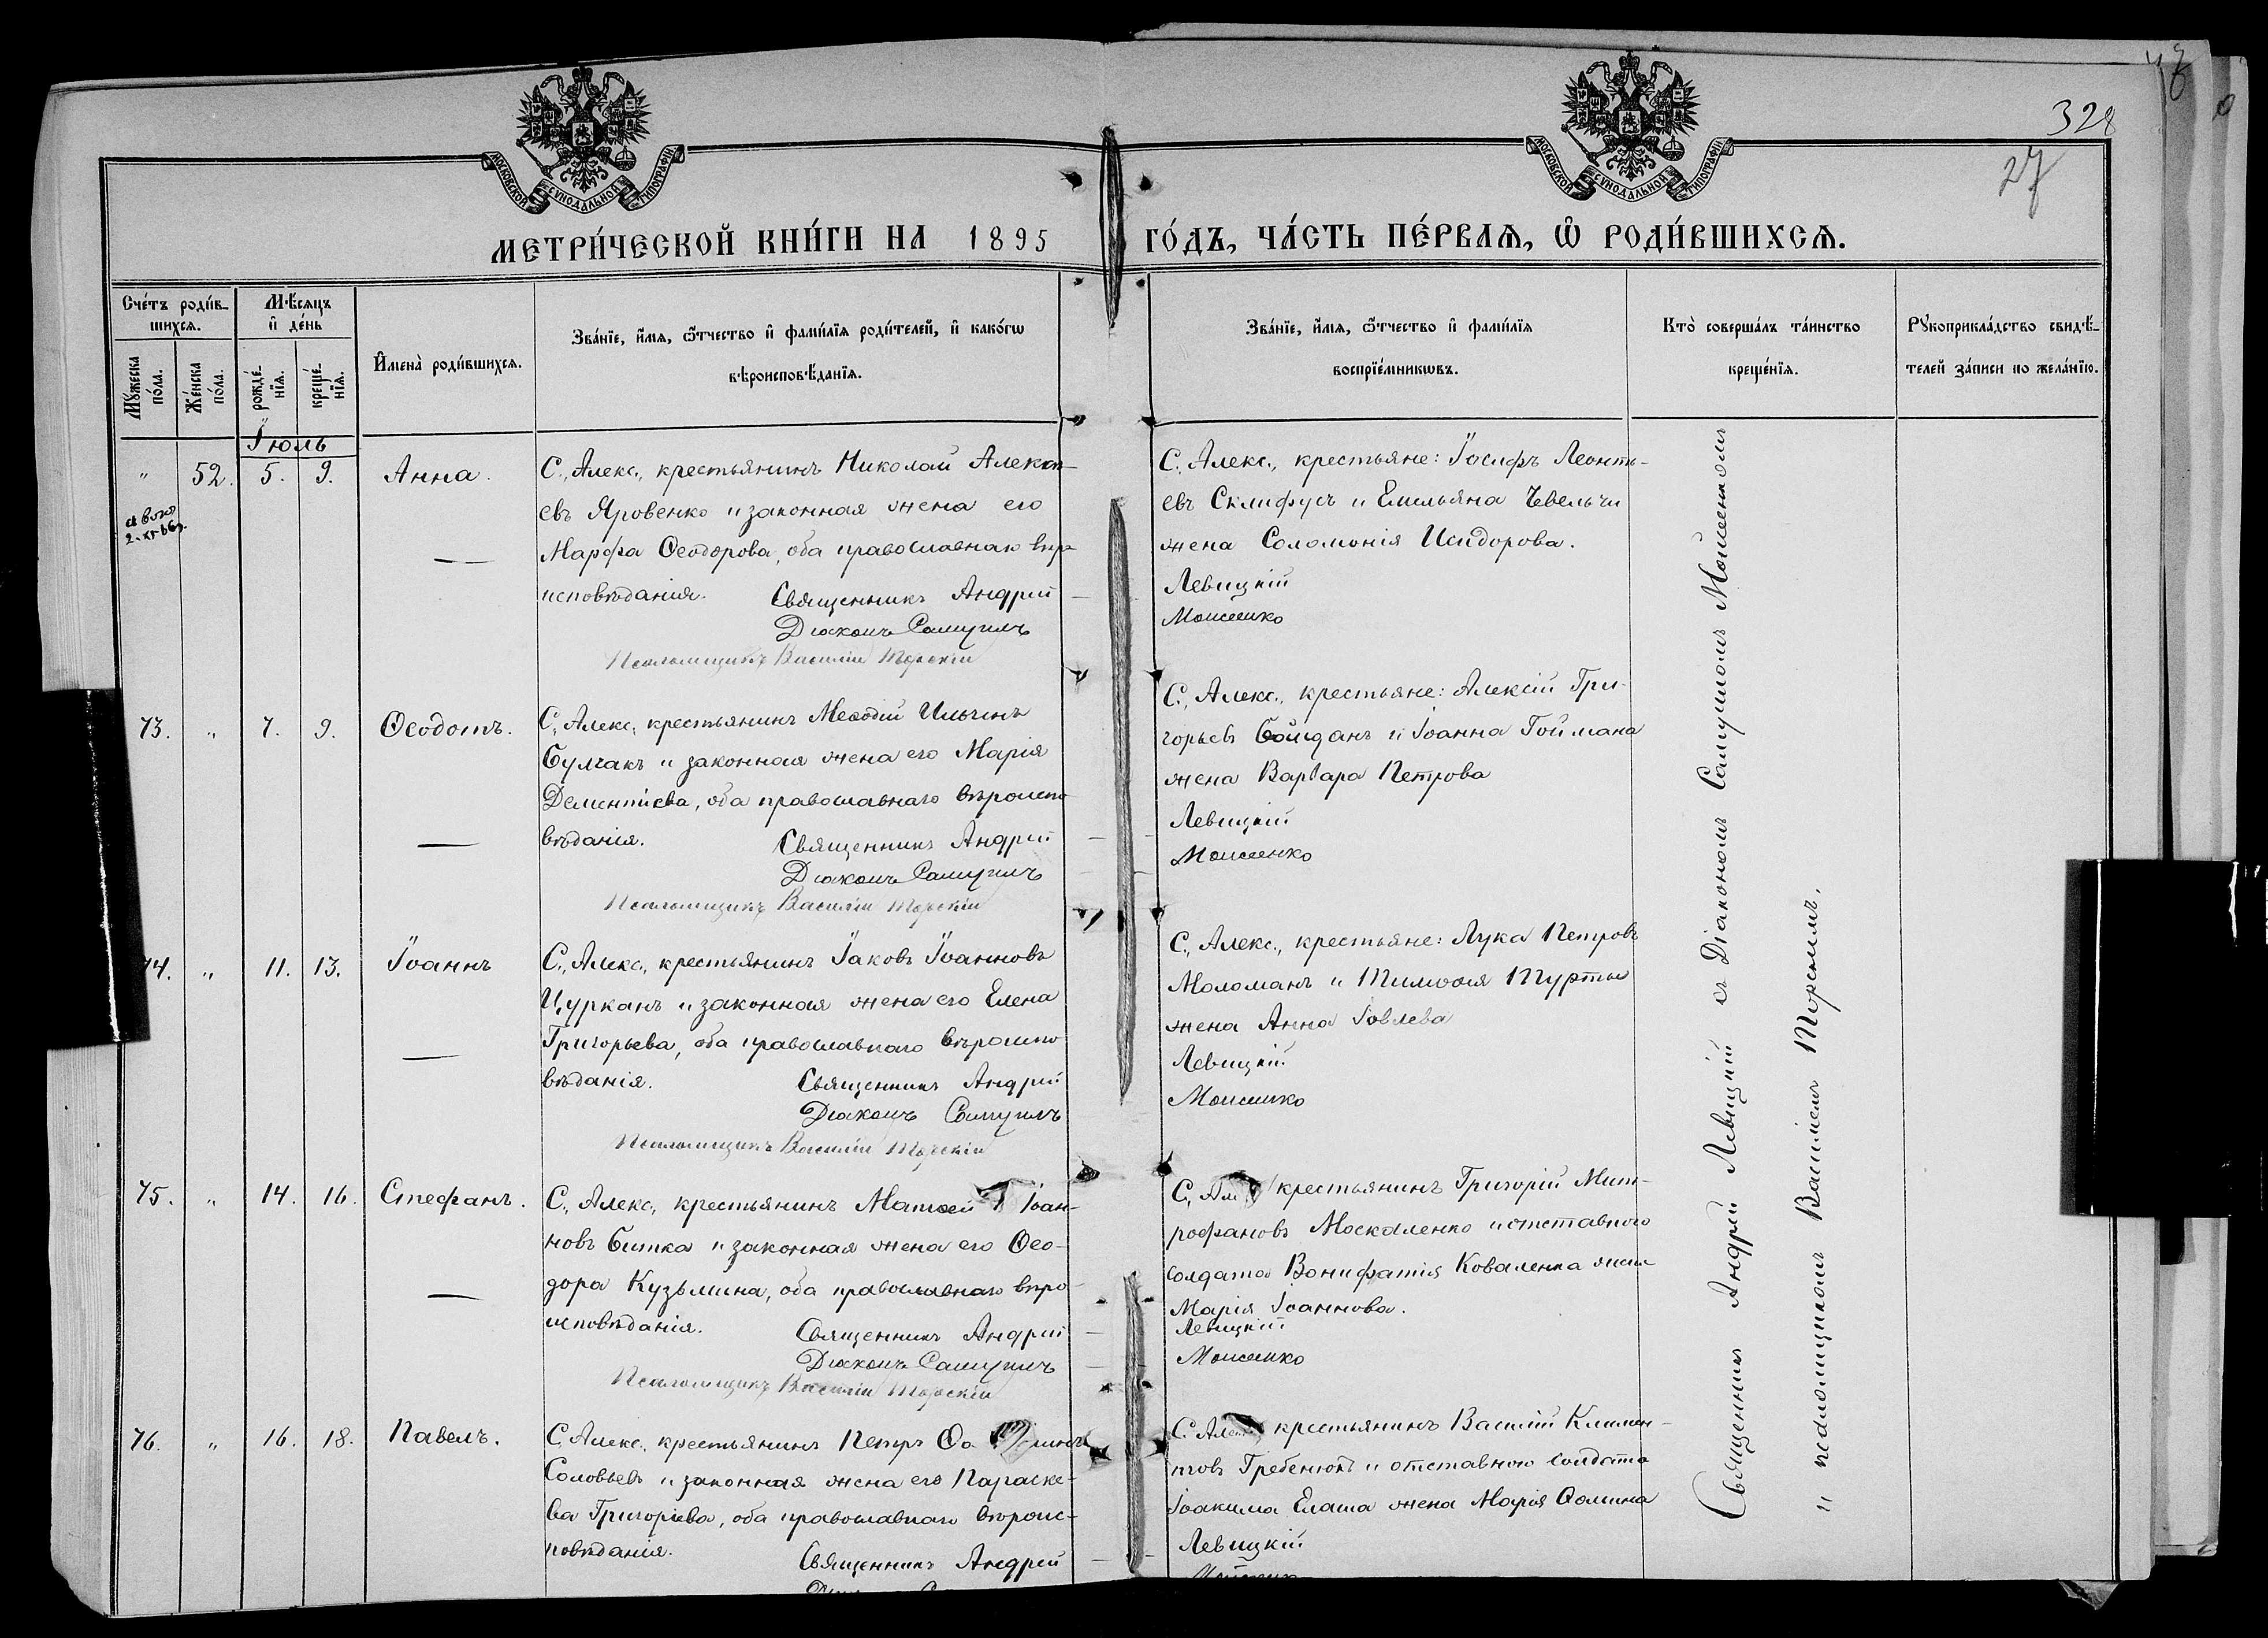 328
27
МОСКОВСКОЙ СѴНОДАЛЬНОЙ ТИПОГРАФІИ
МОСКОВСКОЙ СѴНОДАЛЬНОЙ ТИПОГРАФІИ
МЕТРИ́ЧЕСКОЙ КНИ́ГИ НА 1895 ГО́ДЪ, ЧА́СТЬ ПЕ́РВАѦ, Ѡ҆ РОДИ́ВШИХСѦ.
Сче́тъ роди́в-
шихсѧ.
Мꙋ́жеска
по́ла.
Же́нска
по́ла.
Мѣ́сѧцъ
и҆ де́нь
рожде́-
нїѧ.
креще́-
нїѧ.
И҆мена̀ роди́вшихсѧ.
Зва́нїе, и҆́мѧ, ѻ҆́тчество и҆ фами́лїѧ роди́телей, и҆ како́гѡ
вѣроисповѣ́данїѧ.
Зва́нїе, и҆́мѧ, ѻ҆́тчество и҆ фами́лїѧ
воспрїе́мникѡвъ.
Кто̀ соверша́лъ та́инство
креще́нїѧ.
Рꙋкоприкла́дство свидѣ́-
телей за́писи по жела́нїю.
Іюль
" 52. 5. 9. Анна.
С. Алекс., крестьянинъ Николай Алексѣ-
евъ Яровенко и законная жена его
Марфа Ѳеодорова, оба православнаго вѣро-
исповѣданія. Священникъ Андрей
Діаконъ Самуилъ
Псаломщикъ Василій Торскій
С. Алекс., крестьяне: Іосифъ Леонть-
евъ Склифусъ и Емельяна Чевельчи
жена Соломонія Исидорова.
Левицкій
Моисеенко
73. " 7. 9. Ѳеодотъ.
С. Алекс., крестьянинъ Меѳодій Ильинъ
Булгакъ и законная жена его Марія
Дементіева, оба православнаго вѣроиспо-
вѣданія. Священникъ Андрей
Діаконъ Самуилъ
Псаломщикъ Василій Торскій
С. Алекс., крестьяне: Алексій Гри-
горьевъ Бойданъ и Іоанна Гоймана
жена Варвара Петрова
Левицкій
Моисеенко
74. " 11. 13. Іоаннъ
С. Алекс., крестьянинъ Іаковъ Іоанновъ
Цурканъ и законная жена его Елена
Григорьева, оба православнаго вѣроиспо-
вѣданія. Священникъ Андрей
Діаконъ Самуилъ
Псаломщикъ Василій Торскій
С. Алекс., крестьяне: Лука Петровъ
Моломанъ и Тимоѳея Турты
жена Анна Іовлева
Левицкій
Моисеенко
75. " 14. 16. Стефанъ.
С. Алекс., крестьянинъ Матѳей Іоан-
новъ Битка и законная жена его Ѳео-
дора Кузьмина, оба православнаго вѣро-
исповѣданія. Священникъ Андрей
Діаконъ Самуилъ
Псаломщикъ Василій Торскій
С. Ал крестьянинъ Григорій Мит-
рофановъ Москаленко и отставного
солдата Вонифатія Коваленка жена
Марія Іоаннова.
Левицкій
Моисеенко
76. " 16. 18. Павелъ.
С. Алекс., крестьянинъ Петръ
Соловьевъ и законная жена его Параске-
ва Григоріева, оба православнаго вѣроис-
повѣданія. Священникъ Андрей
С. Алекс крестьянинъ Василій Климен-
товъ Гребенюкъ и отставного солдата
Іоакима Елаша жена Марія Ѳомина
Левицкій
Священникъ Андрей Левицкій съ Діакономъ Самуиломъ Моисеенкомъ
и псаломщикомъ Василіемъ Торскимъ.